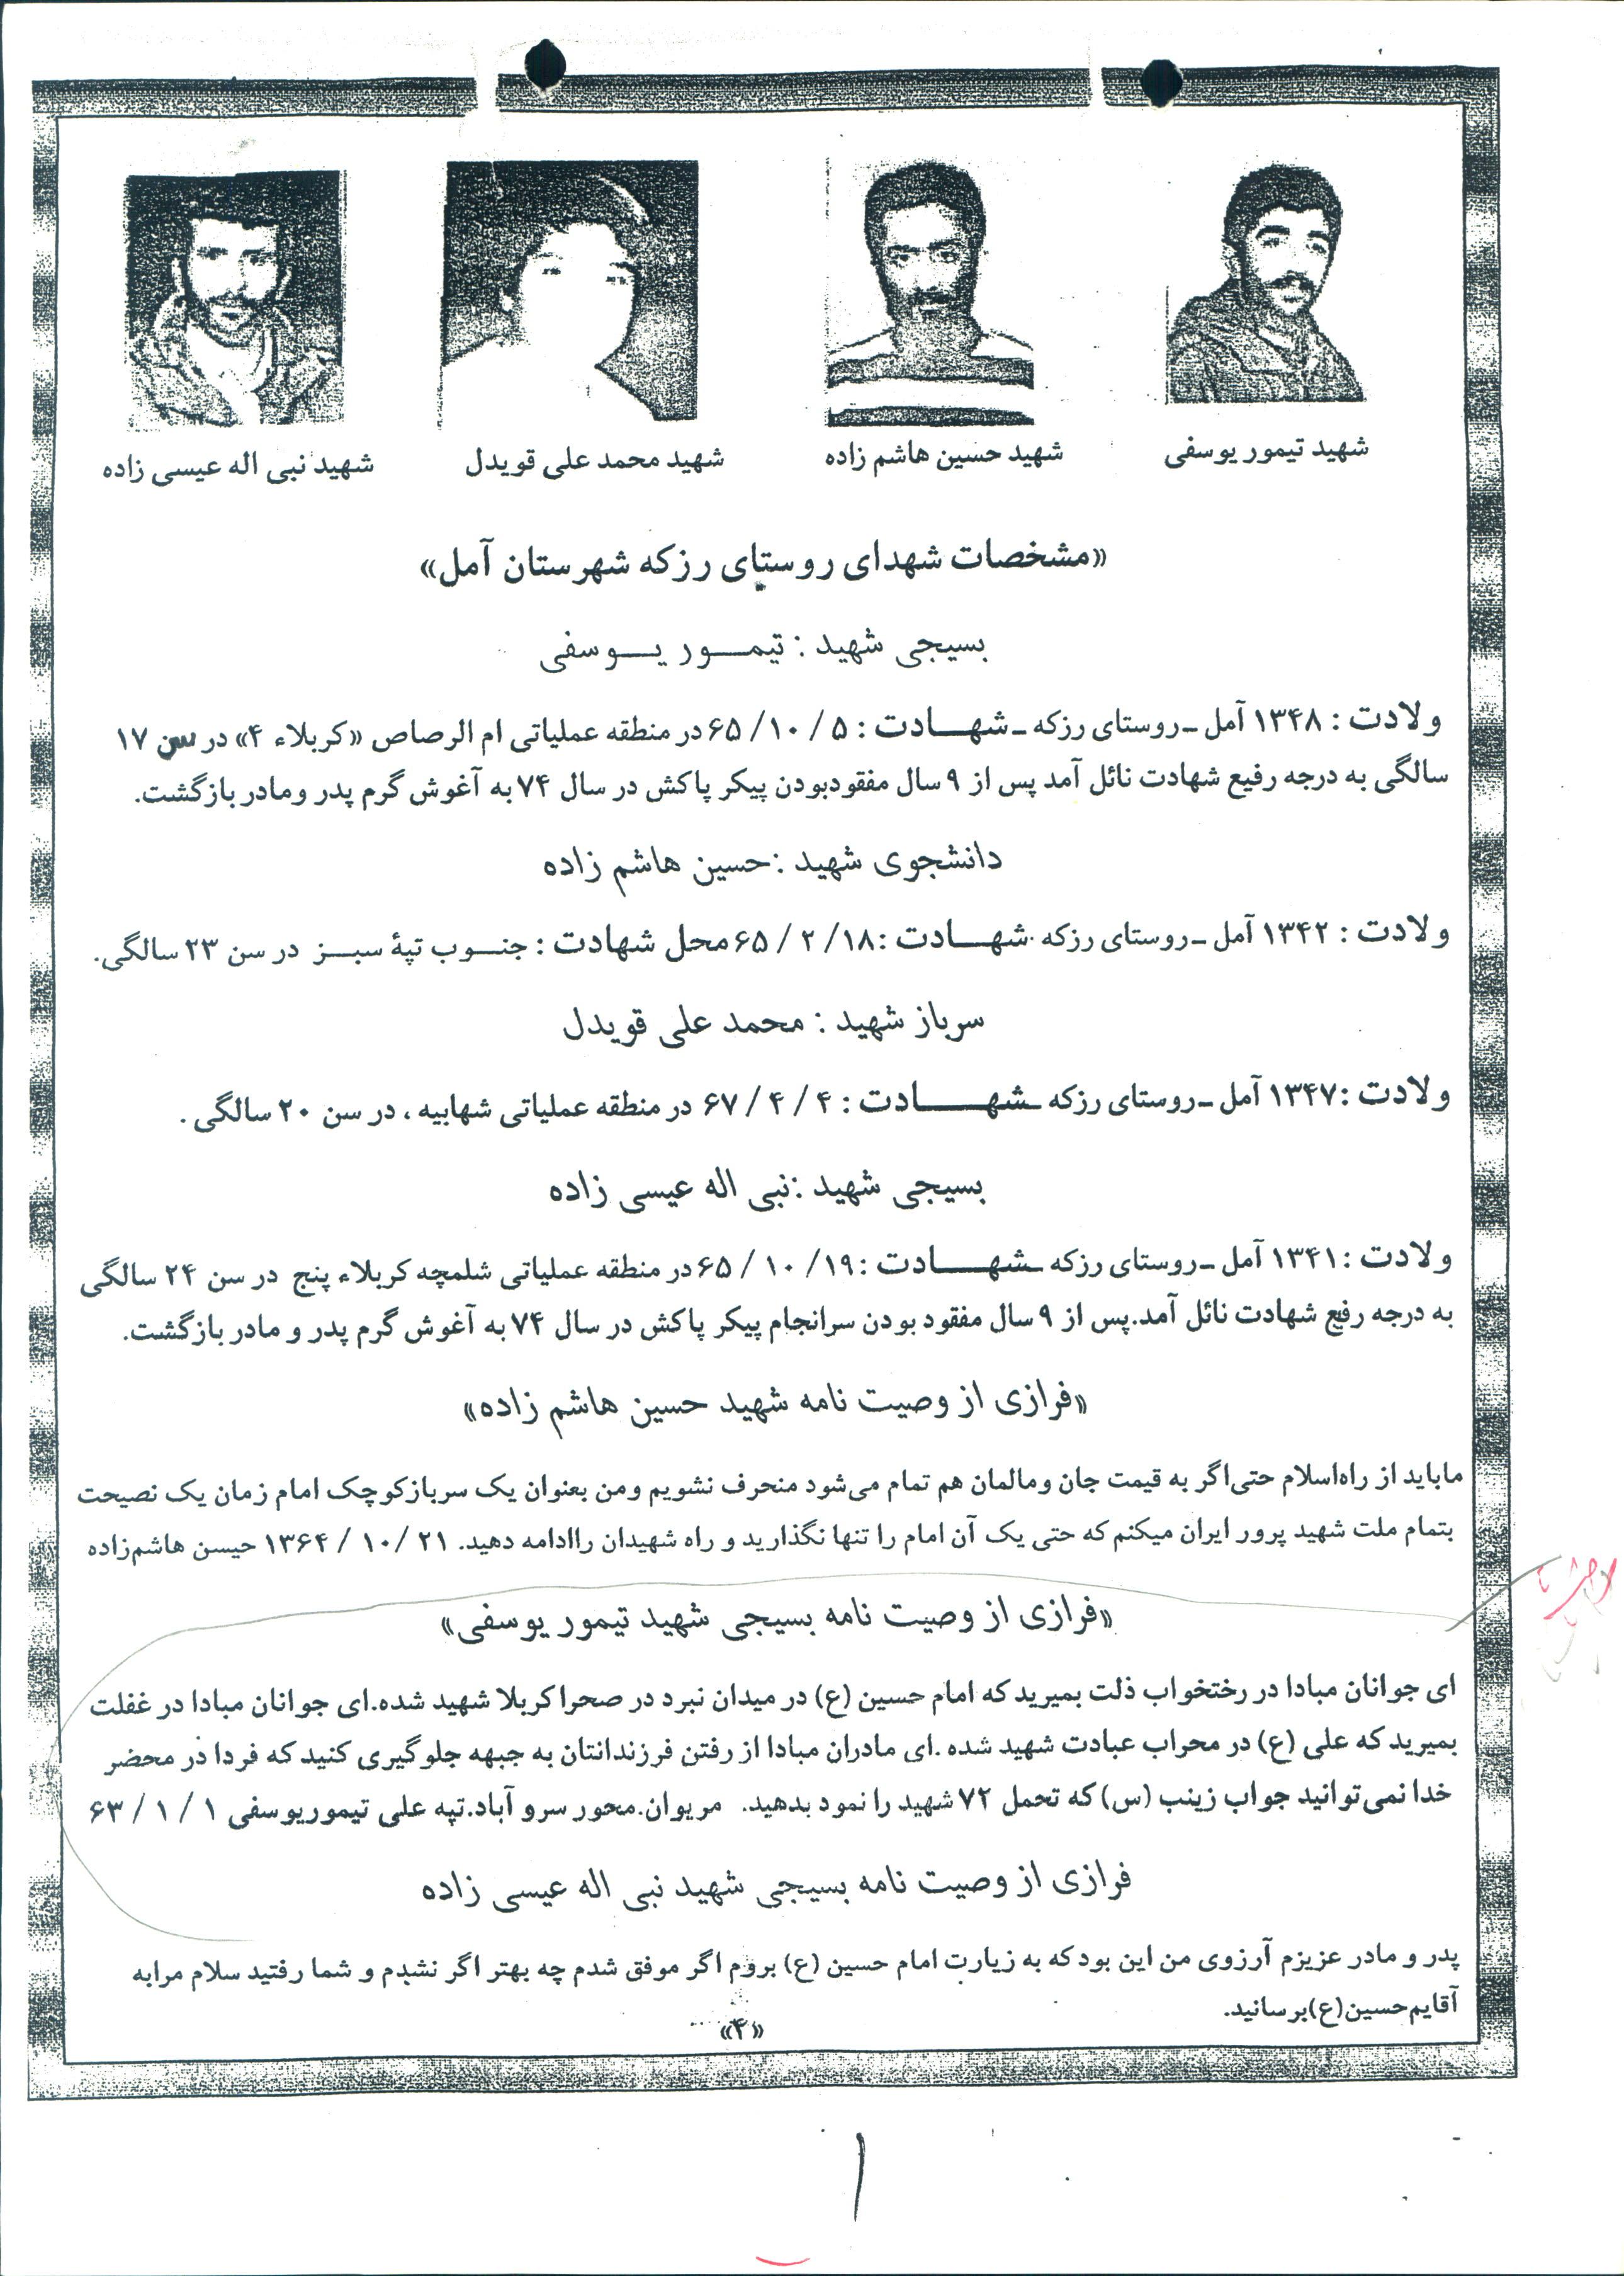 شهید تیمور یوسفی
شهید حسین هاشم زاده
شهید محمد علی قویدل
شهید نبی اله عیسی زاده
«مشخصات شهدای روستای رزکه شهرستان آمل»
بسیجی شهید : تیمـــور یـــوسفی
ولادت : ۱۳۴۸ آمل ـ روستای رزکه ـ شهـــادت : ۵ / ۱۰ / ۶۵ در منطقه عملیاتی ام الرصاص «کربلاء ۴» در سن ۱۷
سالگی به درجه رفیع شهادت نائل آمد پس از ۹ سال مفقودبودن پیکر پاکش در سال ۷۴ به آغوش گرم پدر ومادر بازگشت.
دانشجوی شهید :حسین هاشم زاده
ولادت : ۱۳۴۲ آمل ـ روستای رزکه شهـــادت :۱۸/ ۲ / ۶۵ محل شهادت : جنـــوب تپۀ سبـــز در سن ۲۳ سالگی.
سرباز شهید : محمد علی قویدل
ولادت :۱۳۴۷ آمل ـ روستای رزکه ـشهـــــادت : ۴ / ۴ / ۶۷ در منطقه عملیاتی شهابیه ، در سن ۲۰ سالگی .
بسیجی شهید :نبی اله عیسی زاده
ولادت :۱۳۴۱ آمل ـ روستای رزکه ـشهـــــادت :۱۹/ ۱۰ / ۶۵ در منطقه عملیاتی شلمچه کربلاء پنج در سن ۲۴ سالگی
به درجه رفع شهادت نائل آمد.پس از ۹ سال مفقود بودن سرانجام پیکر پاکش در سال ۷۴ به آغوش گرم پدر و مادر بازگشت.
«فرازی از وصیت نامه شهید حسین هاشم زاده»
ماباید از راه‌اسلام حتی‌اگر به قیمت جان ومالمان هم تمام می‌شود منحرف نشویم ومن بعنوان یک سربازکوچک امام زمان یک نصیحت
بتمام ملت شهید پرور ایران میکنم که حتی یک آن امام را تنها نگذارید و راه شهیدان راادامه دهید. ۲۱ / ۱۰ / ۱۳۶۴ حیسن هاشم‌زاده
«فرازی از وصیت نامه بسیجی شهید تیمور یوسفی»
ای جوانان مبادا در رختخواب ذلت بمیرید که امام حسین (ع) در میدان نبرد در صحرا کربلا شهید شده.ای جوانان مبادا در غفلت
بمیرید که علی (ع) در محراب عبادت شهید شده .ای مادران مبادا از رفتن فرزندانتان به جبهه جلوگیری کنید که فردا در محضر
خدا نمی‌توانید جواب زینب (س) که تحمل ۷۲ شهید را نمود بدهید. مریوان.محور سرو آباد.تپه علی تیموریوسفی ۱ / ۱ / ۶۳
فرازی از وصیت نامه بسیجی شهید نبی اله عیسی زاده
پدر و مادر عزیزم آرزوی من این بود که به زیارت امام حسین (ع) بروم اگر موفق شدم چه بهتر اگر نشدم و شما رفتید سلام مرابه
آقایم‌حسین(ع)برسانید.
«۴»
۱